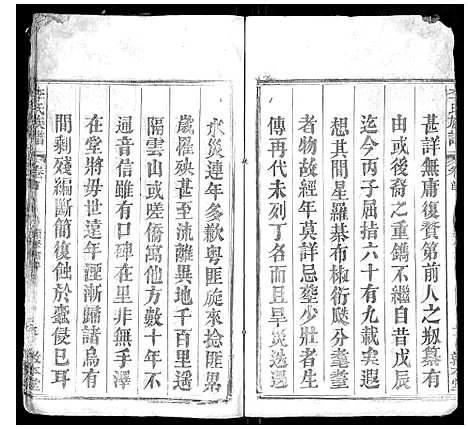 李氏族譜
卷首
甚詳無庸復贅第前人之剏纂有
由或後裔之重鐫不繼自昔戊辰
迄今丙子屈指六十有九載矣遐
想其間星羅碁布椒衍瓞分耄耋
者物故經年莫詳忌塟少壯者生
傳再代未列丁名而且旱災迭遇
水災連年多歉粤匪旋來捻匪畧
歲罹殃甚至流離異地千百里遥
隔雲山或嗟僑寓他方數十年不
通音信雖有口碑在里非無手澤
在堂將毋世遠年湮漸歸諸烏有
間剩殘編斷簡復蝕於蠹侵已耳
李氏族譜
卷首
敦本堂